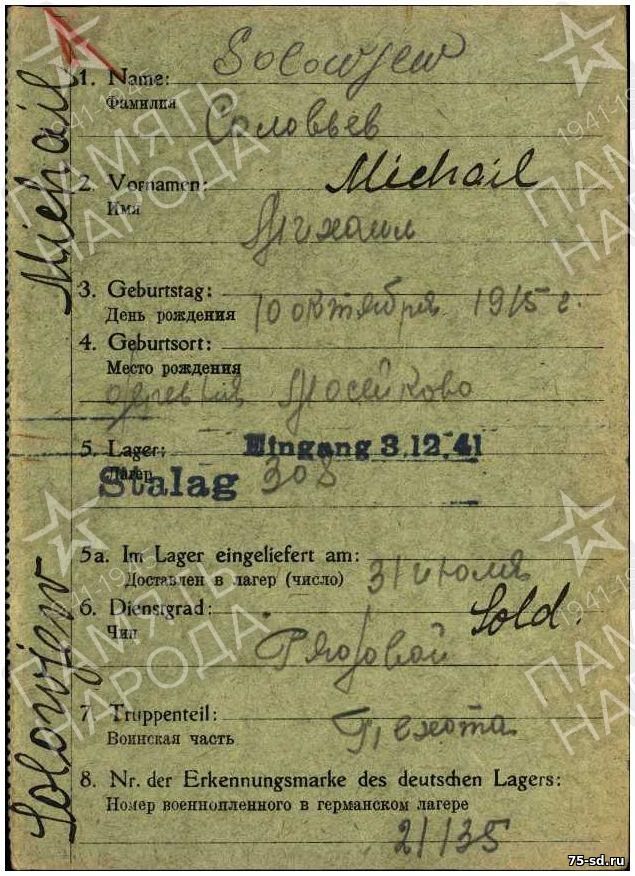 Solowjew
1. Name:
Фамилия
Соловьев
2. Vornamen: Michail
Имя
Михаил
3. Geburtstag:
День рождения 10 октября 1915 г.
4. Geburtsort:
Место рождения
деревня Мосейково
5. Lager: Eingang 3.12.41
Лагер
Stalag 308
5a. Im Lager eingeliefert am:
Доставлен в лагер (число) 31 июля
6. Dienstgrad: Sold.
Чин
Рядовой
7. Truppenteil:
Воинская часть Пехота
8. Nr. der Erkennungsmarke des deutschen Lagers:
Номер военнопленного в германском лагере
21135
Michail
Solowjew
ПАМЯТЬ
НАРОДА
1941-1945
75-sd.ru